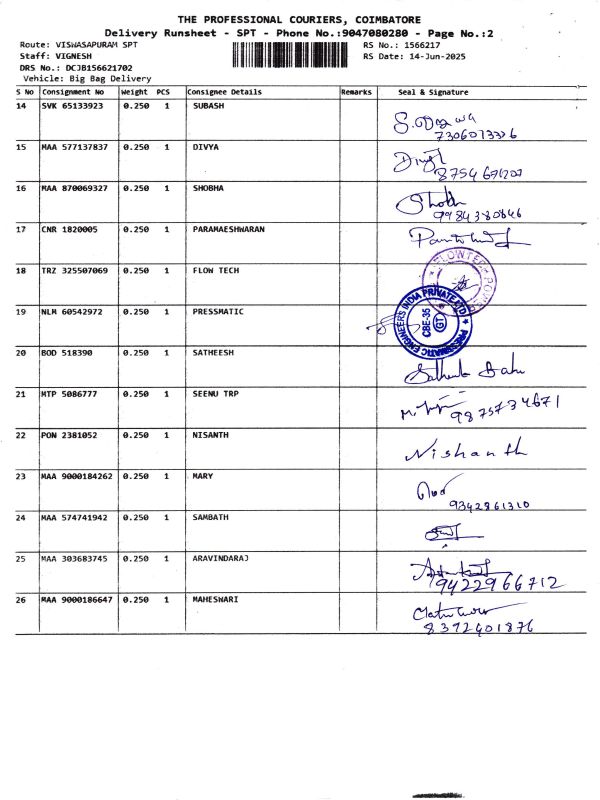 THE PROFESSIONAL COURIERS, COIMBATORE
Delivery Runsheet - SPT - Phone No.:9047080280 - Page No.:2
Route: VISWASAPURAM SPT RS No.: 1566217
Staff: VIGNESH RS Date: 14-Jun-2025
DRS No.: DCJB156621702
Vehicle: Big Bag Delivery
S No Consignment No Weight PCS Consignee Details Remarks Seal & Signature
14 SVK 65133923 0.250 1 SUBASH
15 MAA 577137837 0.250 1 DIVYA
16 MAA 870069327 0.250 1 SHOBHA
9984380846
17 CNR 1820005 0.250 1 PARAMAESHWARAN
18 TRZ 325507069 0.250 1 FLOW TECH
FLOWTECH POWER
19 NLM 60542972 0.250 1 PRESSMATIC
PRESSMATIC ENGINEERS INDIA PRIVATE LTD
CBE-35
GT
20 BOD 518390 0.250 1 SATHEESH
21 MTP 5086777 0.250 1 SEENU TRP
9875734671
22 PON 2381052 0.250 1 NISANTH
Nishanth
23 MAA 9000184262 0.250 1 MARY
9342861310
24 MAA 574741942 0.250 1 SAMBATH
25 MAA 303683745 0.250 1 ARAVINDARAJ
9422966712
26 MAA 9000186647 0.250 1 MAHESWARI
8372401876